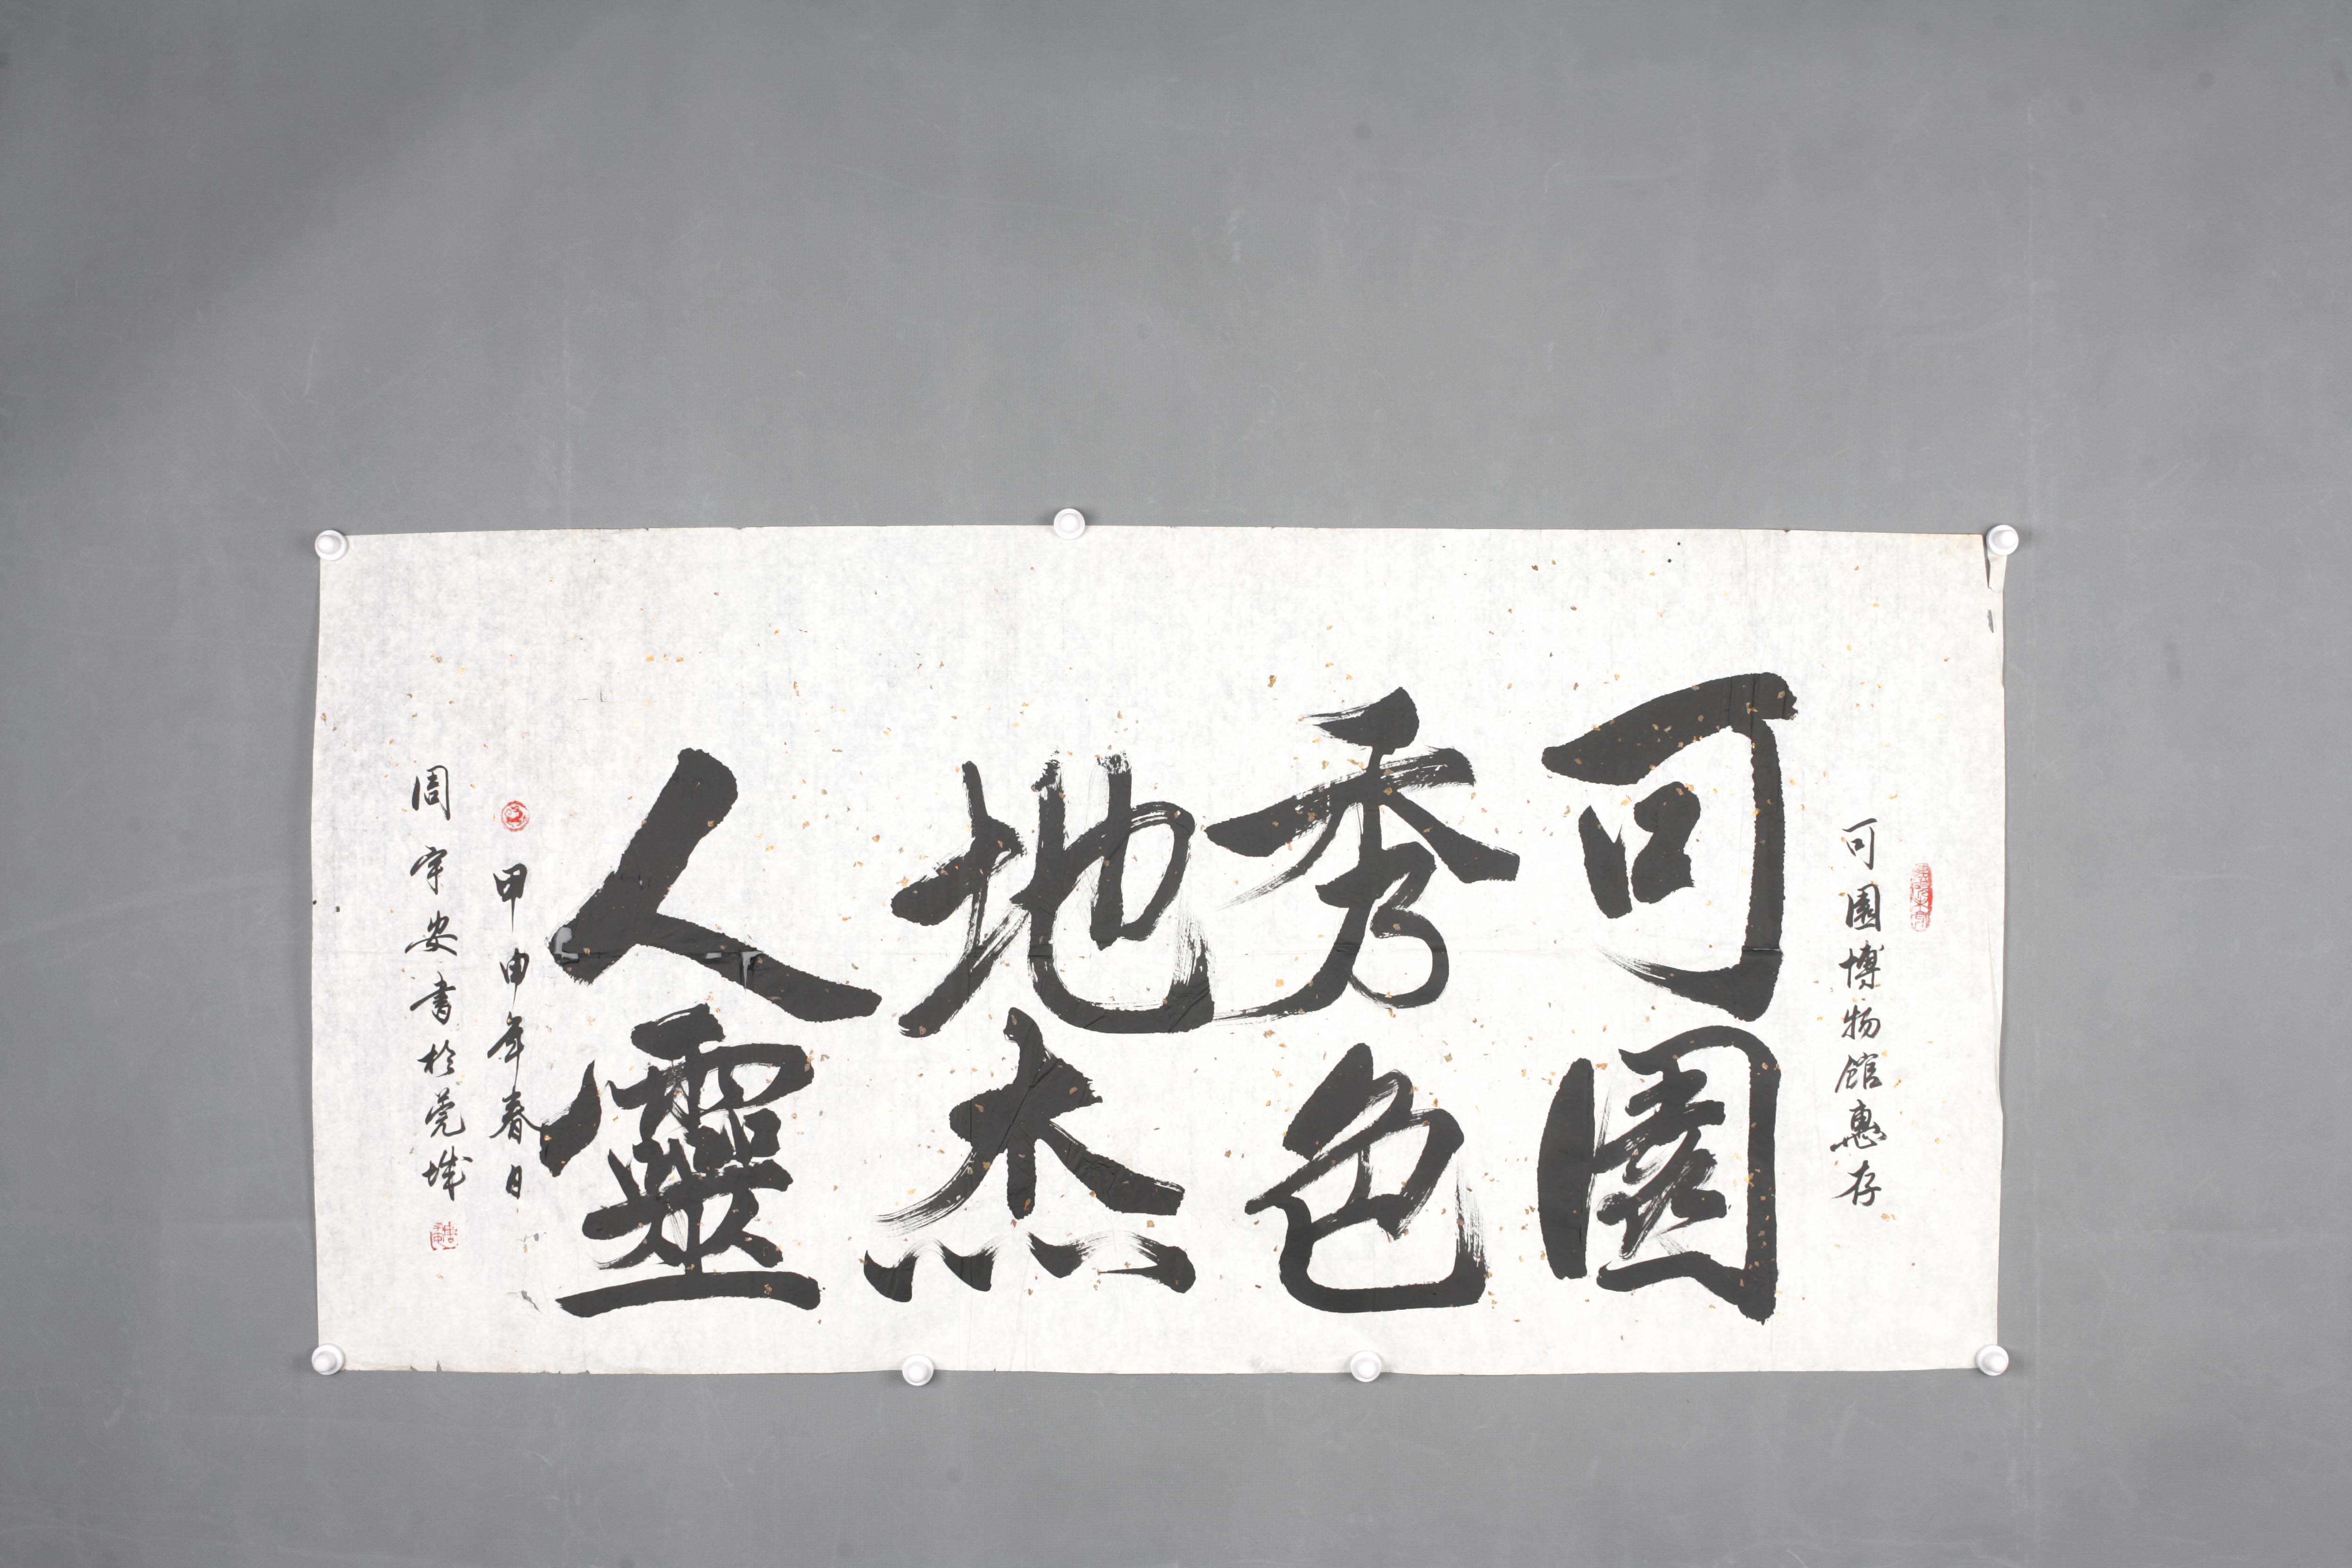 可園博物館惠存
可園
秀色
地杰
人靈
甲申年春日
周宇安書於莞城